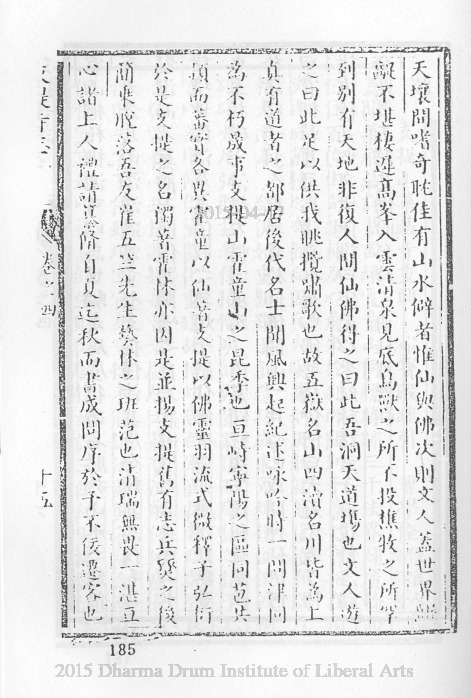 天壤間嗜奇耽佳有山水僻者惟仙與佛次則文人蓋世界
不堪棲遲高峯入雲清泉見底鳥獸之所不投樵牧之所罕
到別有天地非復人間仙佛得之曰此吾洞天道塲也文人遊
之曰此足以供我眺攬嘯歌也故五嶽名山四瀆名川皆為上
真有道者之都居後代名士聞風興起紀述咏吟時一問津同
為不朽晟事支提山霍童山之昆季也亘峙寧陽之區同范共
類而蕃實各異霍童以仙著支提以佛靈羽流式微釋子弘衍
於是支提之名獨著霍林亦因是並揚支提舊有志兵燹之後
簡乘脫落吾友崔五竺先生藝林之班范也清瑞無畏一湛亘
心諸上人禮請纂脩自夏迄秋而書成問序於予不佞遷客也
卷之四
十五
185
2015 Dharma Drum Institute of Liberal Arts